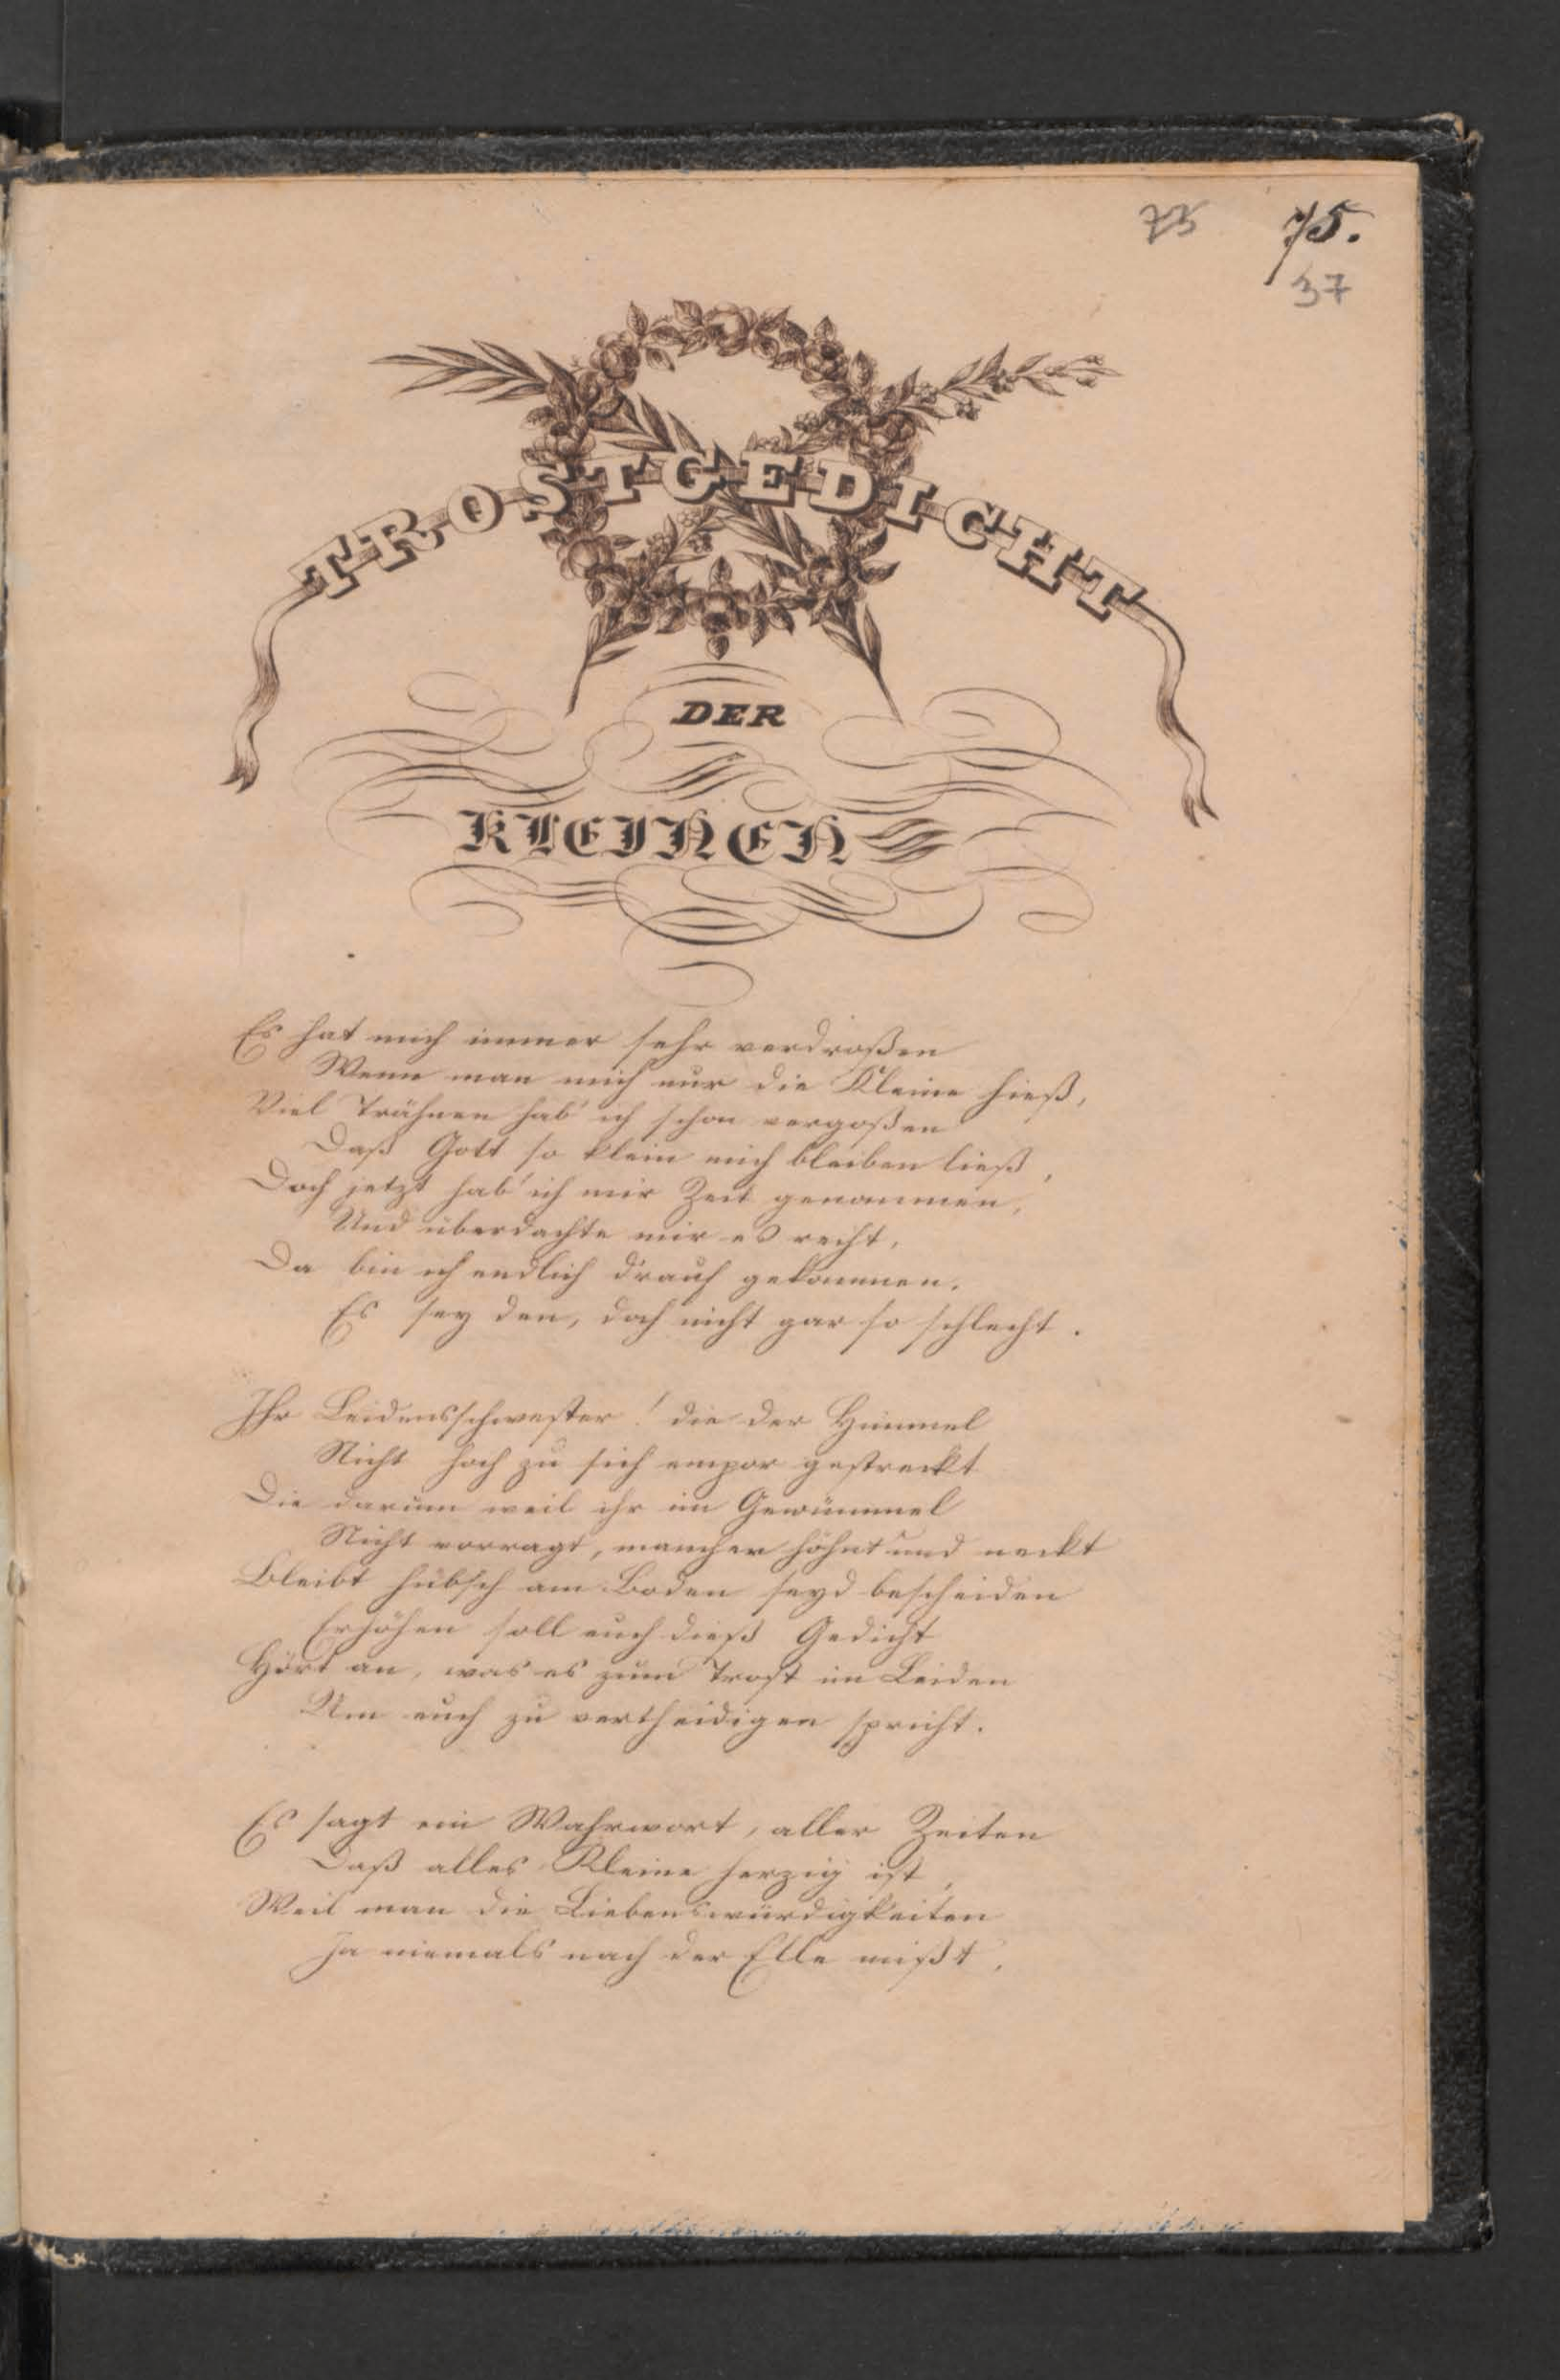 73 75.
37
TROSTGEDICHT
DER
KLEINEN
Es hat mich immer sehr verdroßen
Wenn man mich nur die Kleine hieß,
Viel Trähnen hab' ich schon vergoßen
Daß Gott so klein mich bleiben ließ,
Doch jetzt hab' ich mir Zeit genommen,
Und überdachte mir es recht,
Da bin ich endlich d'rauf gekommen.
Es sey den, doch nicht gar so schlecht.
Ihr Leidensschwester! die der Himmel
Nicht hoch zu sich empor gestreckt
Die darum weil ihr im Gewümmel
Nicht vorragt, mancher höhnt und neckt
Bleibt hübsch am Boden seyd bescheiden
Erhöhen soll euch dieß Gedicht
Hört an, was es zum Trost im Leiden
Um euch zu vertheidigen spricht.
Es sagt ein Wahrwort, aller Zeiten
Daß alles Kleine herzig ist,
Weil man die Liebenswürdigkeiten
Ja niemals nach der Elle mißt,